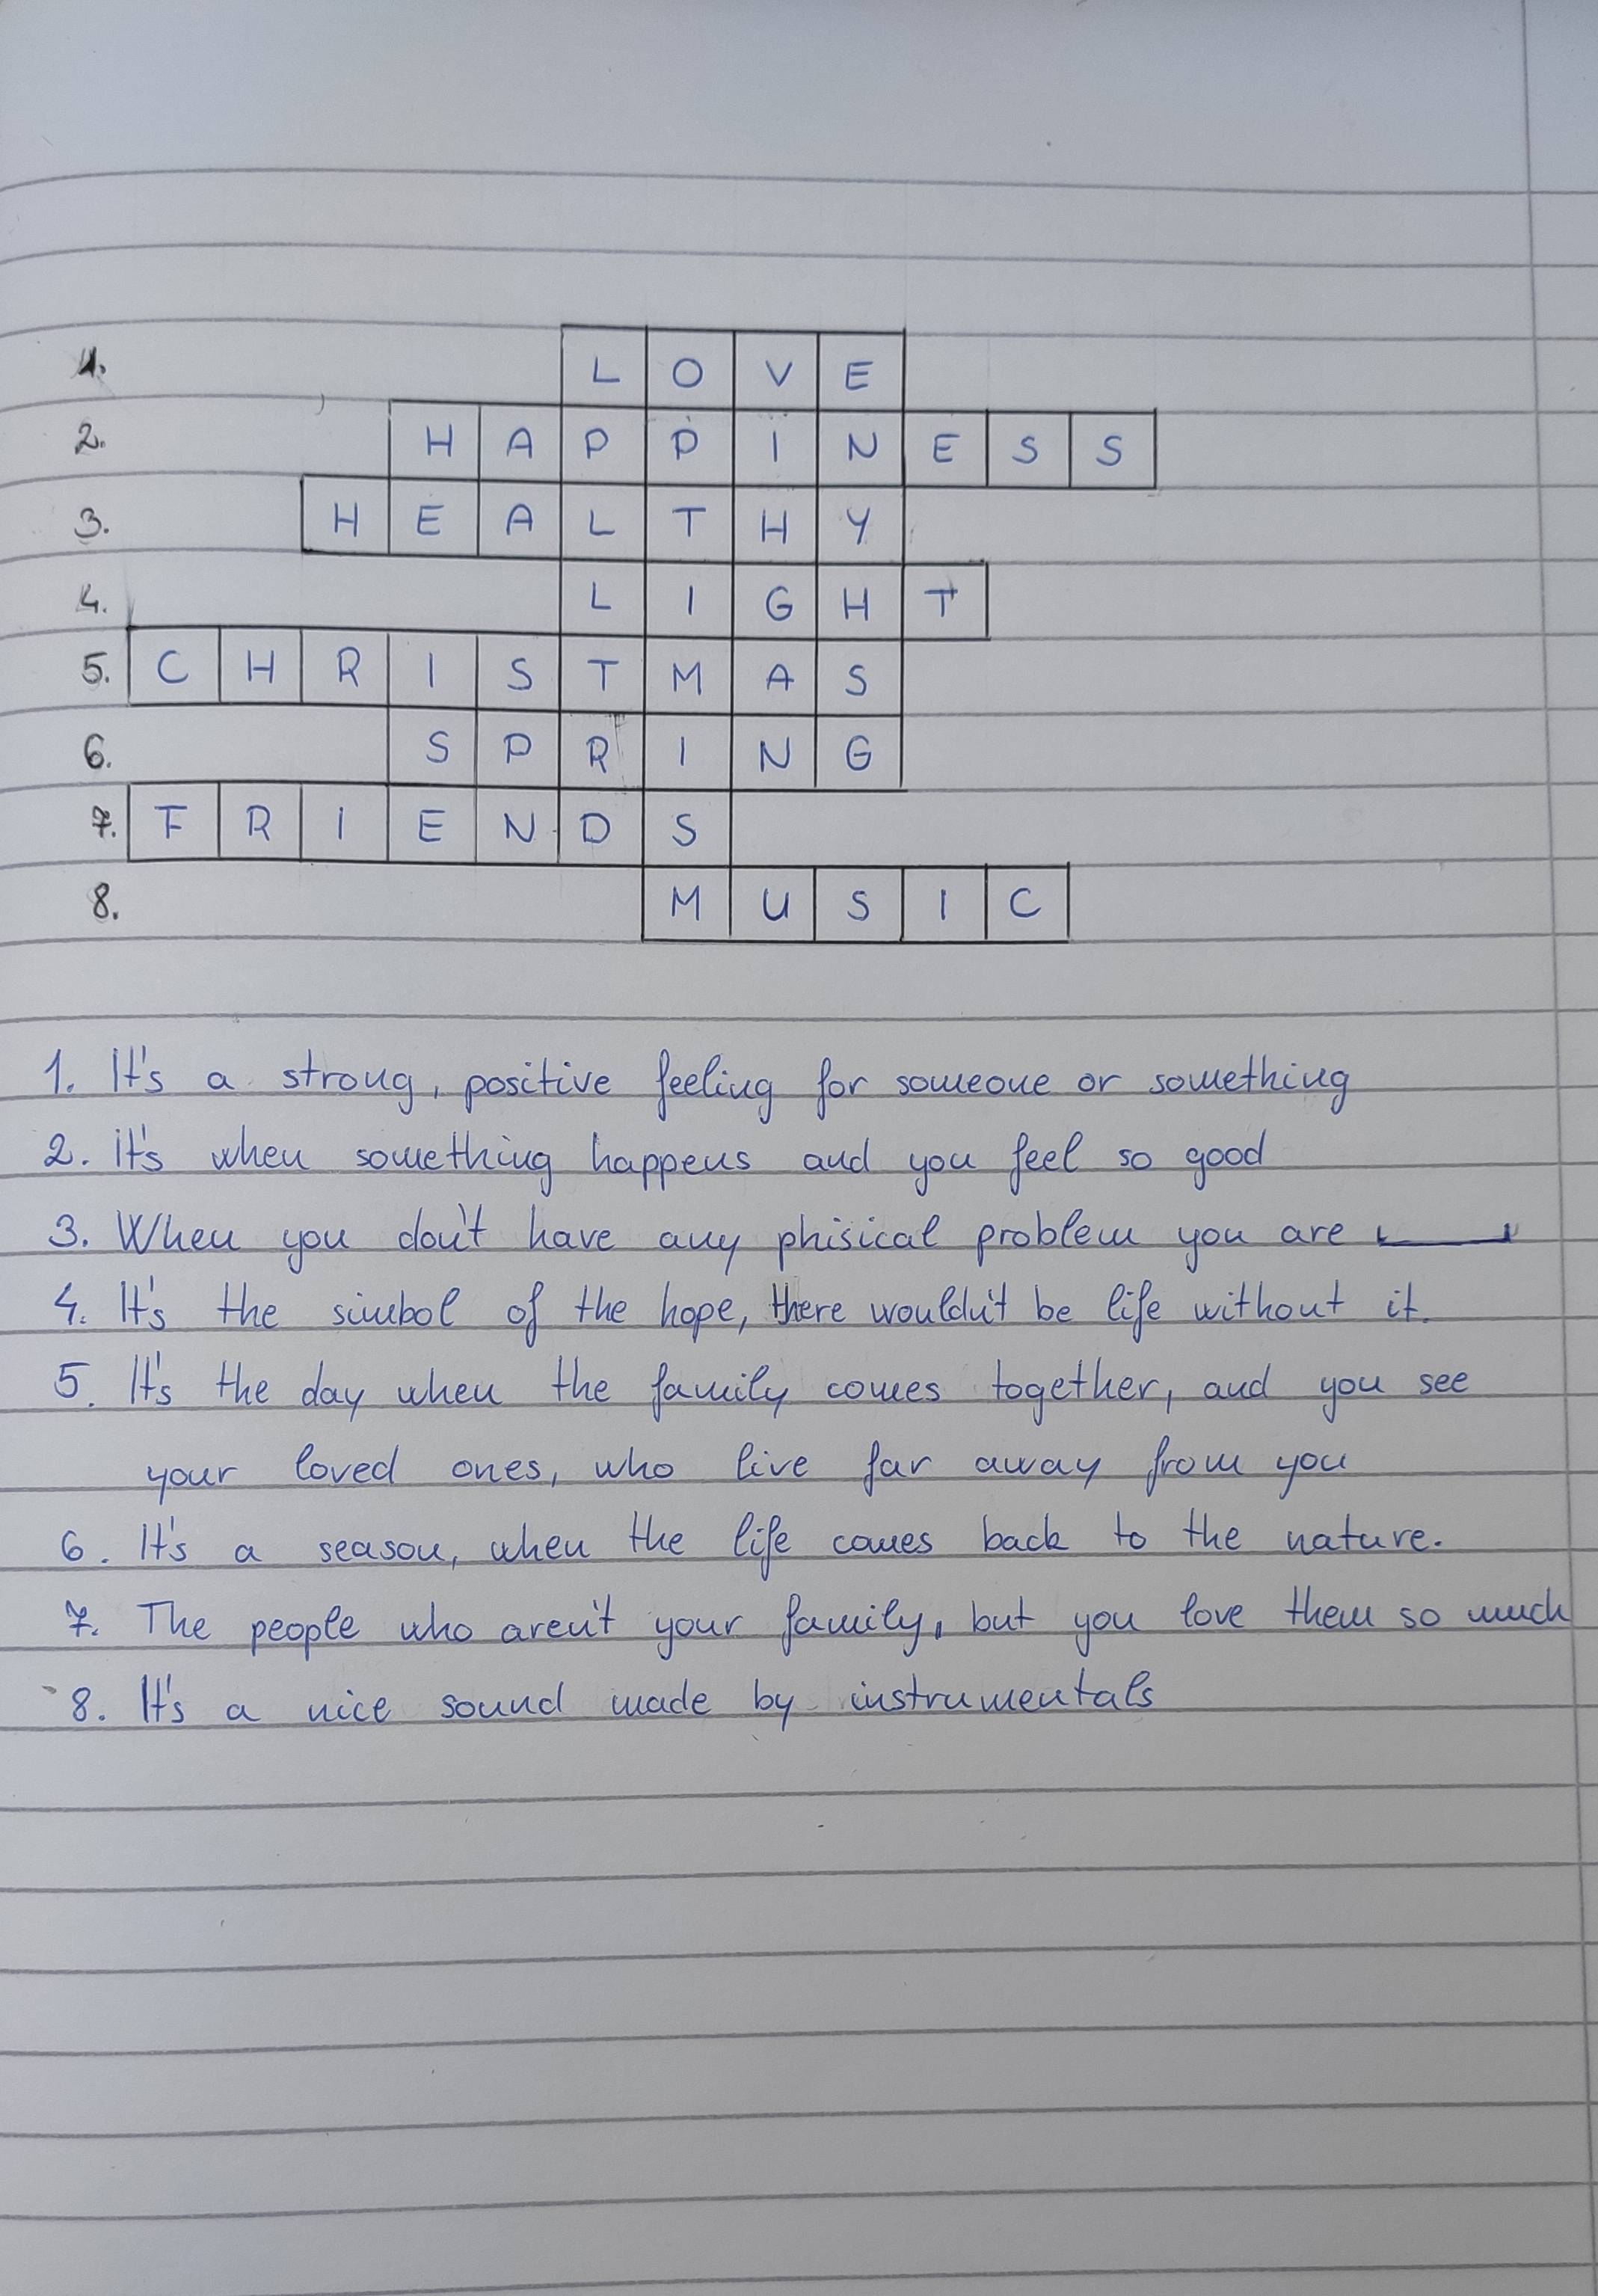 1. L O V E
2. H A P P I N E S S
3. H E A L T H Y
4. L I G H T
5. C H R I S T M A S
6. S P R I N G
7. F R I E N D S
8. M U S I C
1. It's a strong, positive feeling for someone or something
2. it's when something happens and you feel so good
3. When you don't have any phisical problem you are ____
4. It's the simbol of the hope, there wouldn't be life without it.
5. It's the day when the family comes together, and you see
your loved ones, who live far away from you
6. It's a season, when the life comes back to the nature.
7. The people who aren't your family, but you love them so much
8. It's a nice sound made by instrumentals